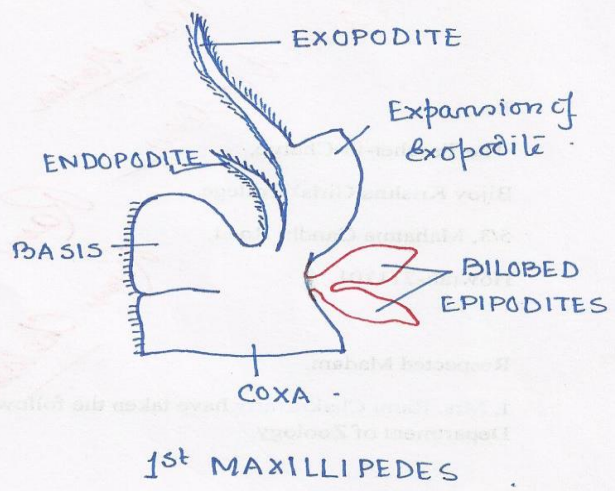 EXOPODITE
Expansion of
Exopodite
ENDOPODITE
BASIS
BILOBED
EPIPODITES
COXA
1st MAXILLIPEDES